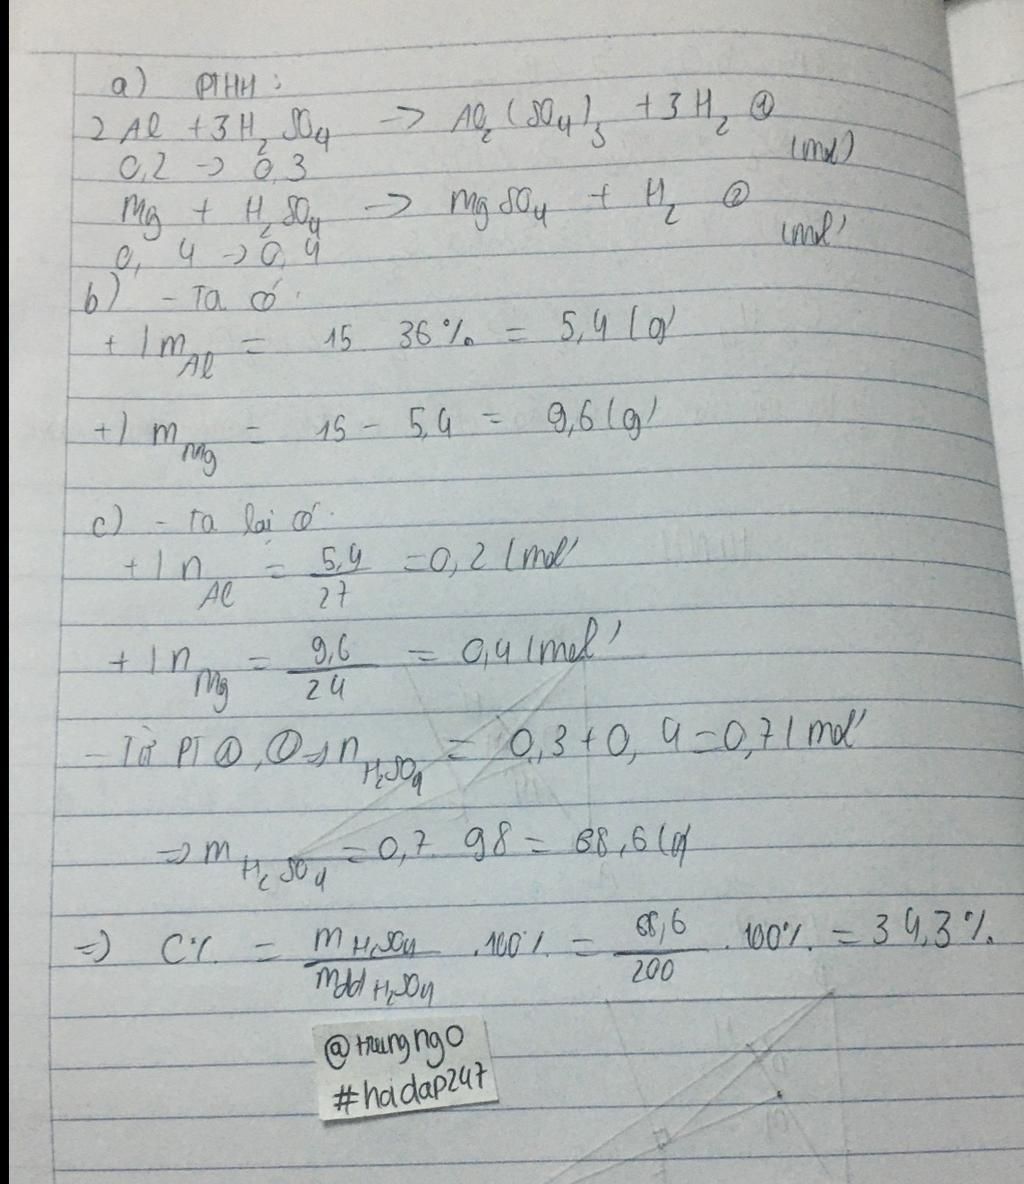 a) PTHH:
2Al + 3H2SO4 -> Al2(SO4)3 + 3H2 ①
0,2 -> 0,3 (mol)
Mg + H2SO4 -> MgSO4 + H2 ②
0,4 -> 0,4 (mol)
b) - Ta có:
+) mAl = 15 . 36% = 5,4 (g)
+) mMg = 15 - 5,4 = 9,6 (g)
c) - Ta lại có:
+) nAl = 5,4/27 = 0,2 (mol)
+) nMg = 9,6/24 = 0,4 (mol)
- Từ PT ①, ② => nH2SO4 = 0,3 + 0,4 = 0,7 (mol)
=> mH2SO4 = 0,7 . 98 = 68,6 (g)
=> C% = mH2SO4/mddH2SO4 .100% = 68,6/200 .100% = 34,3%.
@trungngo
#hoidap247